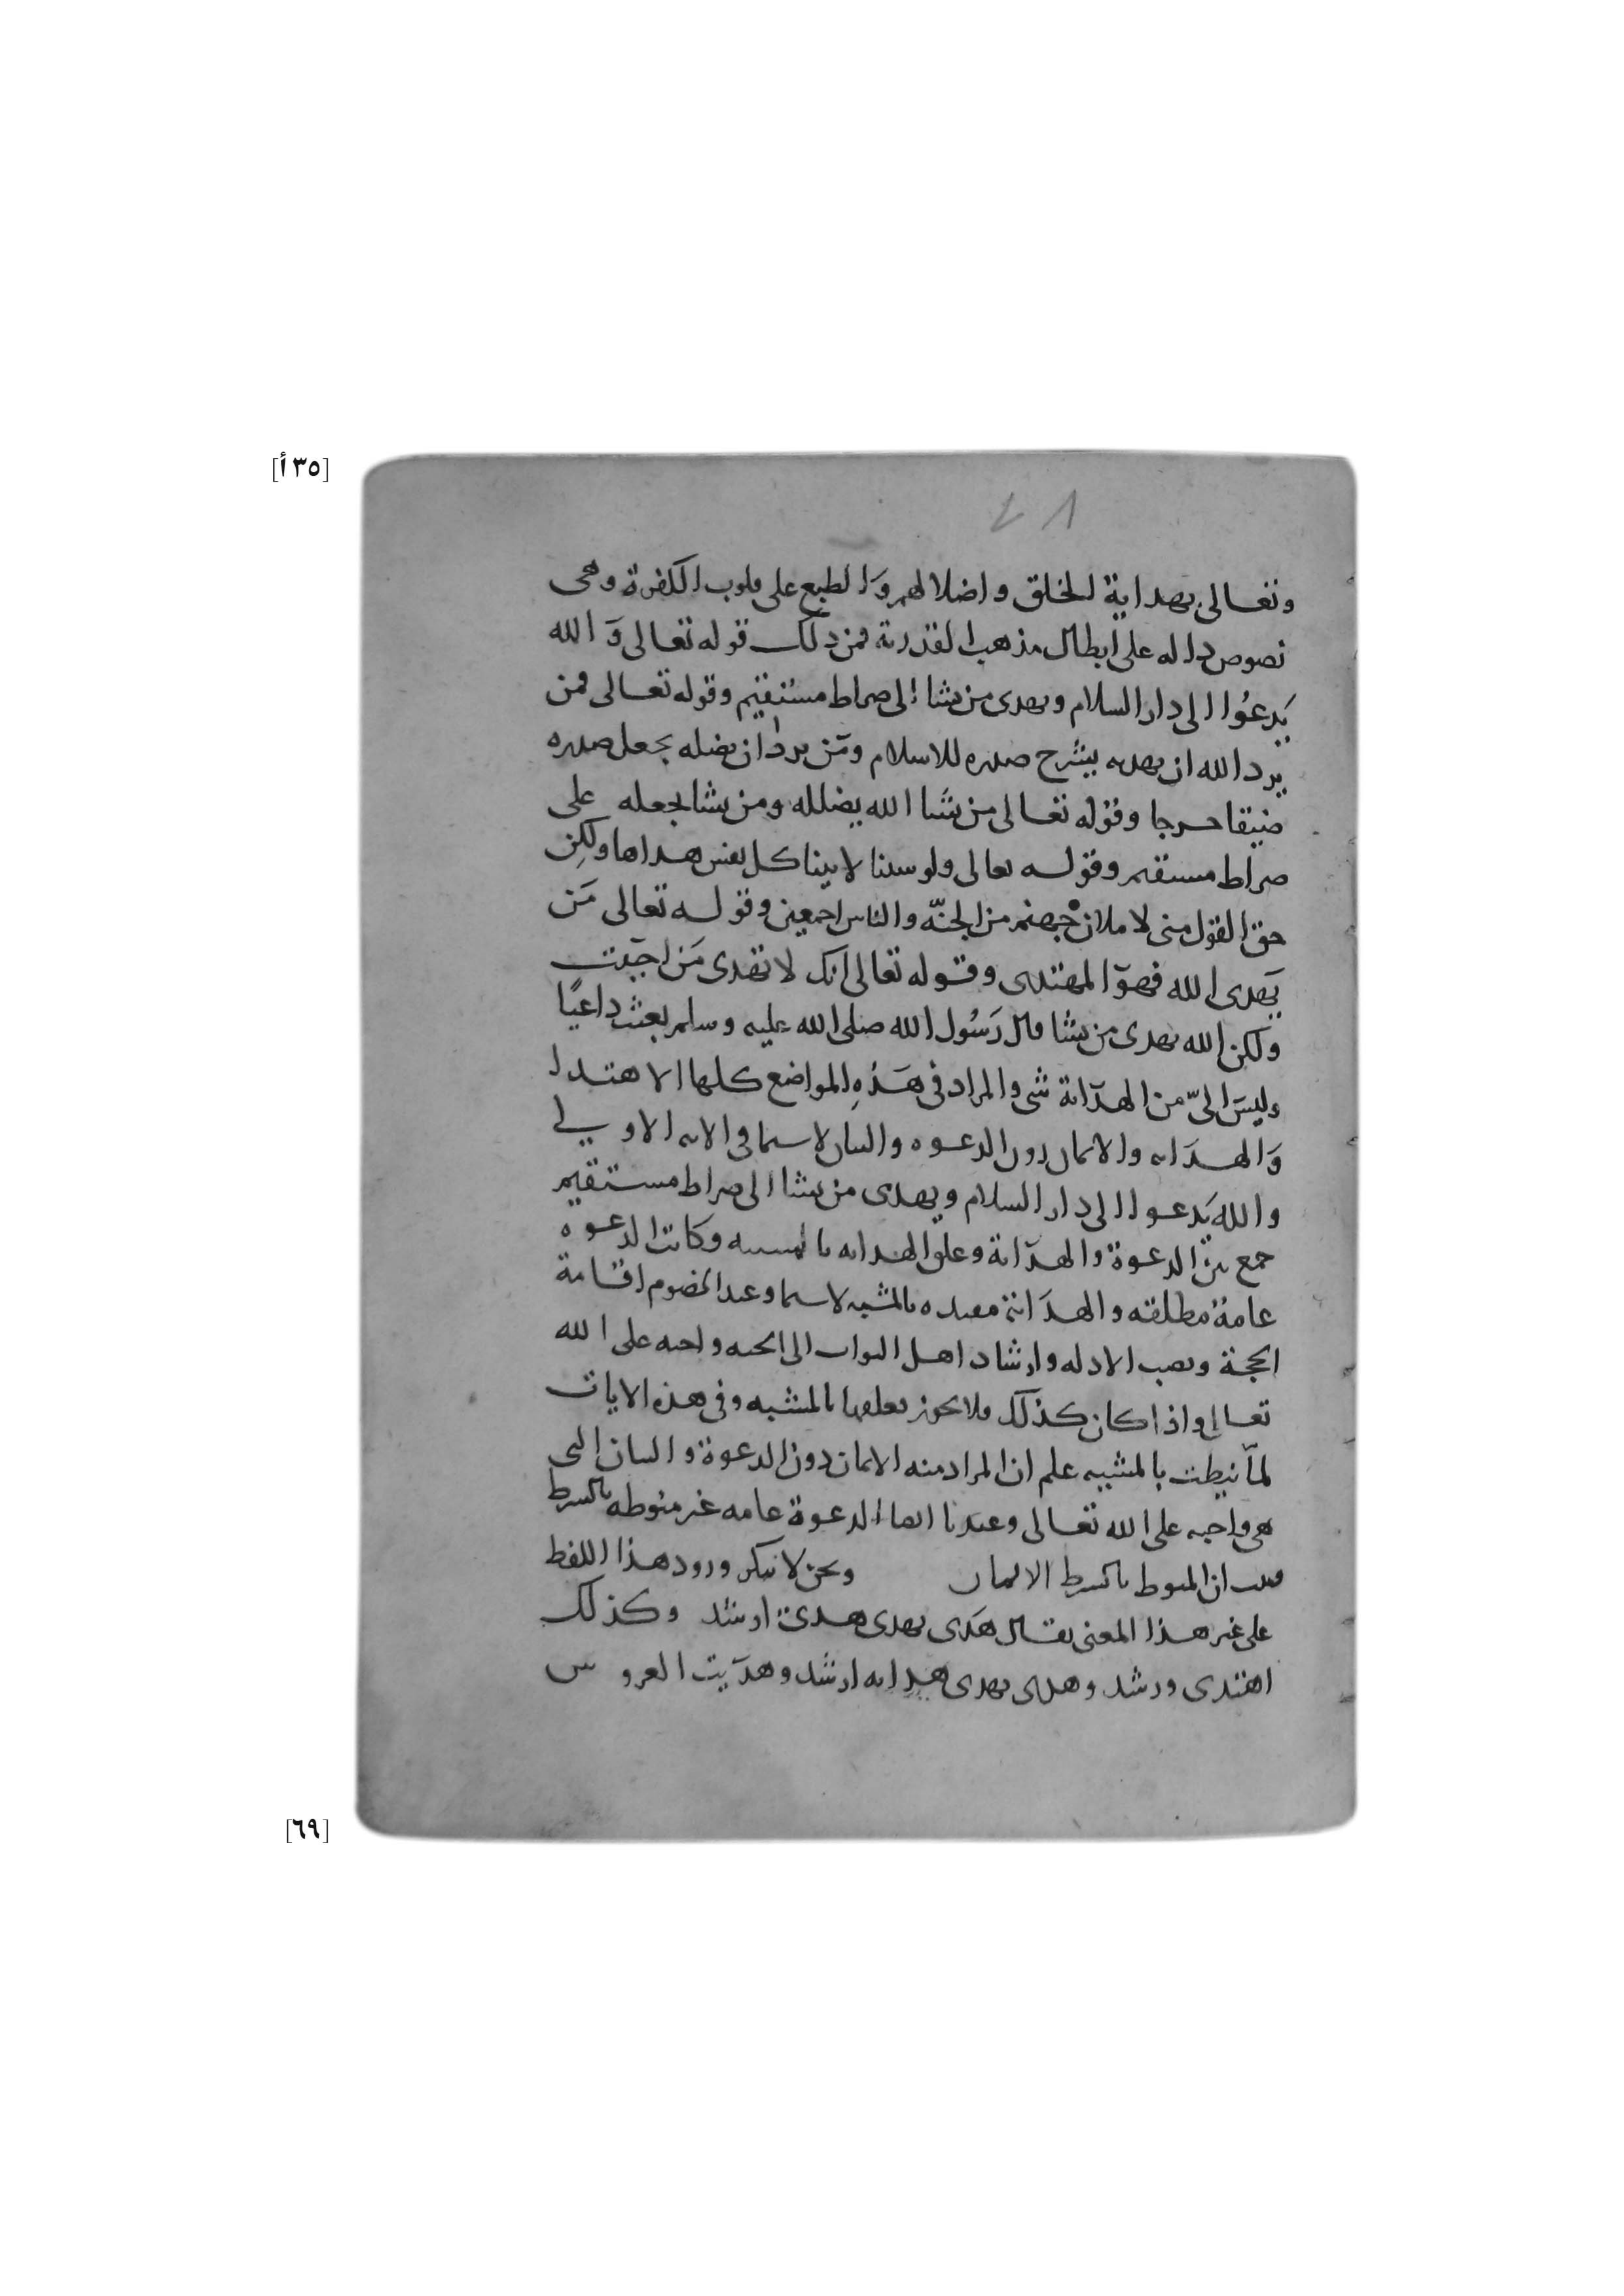 [٣٥ أ]
٤٨
وتعالى بهداية الخلق واضلالهم والطبع على قلوب الكفرة وهى
نصوص داله على ابطال مذهب القدرية فمن ذلك قوله تعالى وَالله
يَدعُوا الى دار السلام ويهدى من يشا الى صراط مستقيم وقوله تعالى فمن
يرد الله ان يهديه يشرح صدره للاسلام ومَن يرد ان يضله يجعل صدره
ضيقا حرجا وقوله تعالى من يشا الله يضلله ومن يشا يجعله على
صراط مستقيم وقوله تعالى ولو سينا لاتينا كل نفس هداها ولكِن
حق القول منى لاملان جهنم من الجنّه والناس اجمعين وقوله تعالى مَن
يَهدى الله فهوَ المهتدى وقوله تعالى انك لا تهدى مَن احبَبت
ولكن الله يهدى من يشا قال رَسُول الله صلى الله عليه وسلم بعثت داعيًا
وليسَ الىّ من الهدَاية شى والمراد فى هَذِه المواضع كلها الاهتدا
وَالهدَايه والايمان دون الدعوه والبيان لاسيما فى الايه الاولى
والله يَدعوا الى دار السلام ويهدى من يشا الى صراط مستقيم
جمع بين الدعوة والهدَاية وعلق الهدايه بالمشيه وكانت الدعوه
عامة مطلقه والهدَاية مقيده بالمشيه لاسيما وعند الخصوم اقامة
الحجة ونصب الادله وارشاد اهل الثواب الى الجنه واجبه على الله
تعالى واذا كان كذلك فلا يجوز تعلقها بالمشيه وفى هذه الايات
لمّا نيطت بالمشيه علم ان المراد منه الايمان دون الدعوة والبيان التى
هى واجبه على الله تعالى وعندنا ايضا الدعوة عامه غير منوطه بالشرط
فثبت ان المنوط بالشرط الايمان ونحن لا ننكر ورود هذا اللفظ
على غير هذا المعنى يقال هَدَى يهدى هدىً ارشد وكذلك
اهتدى ورشد وهدى يهدى هدايه ارشد وهدَيت العروس
[٦٩]